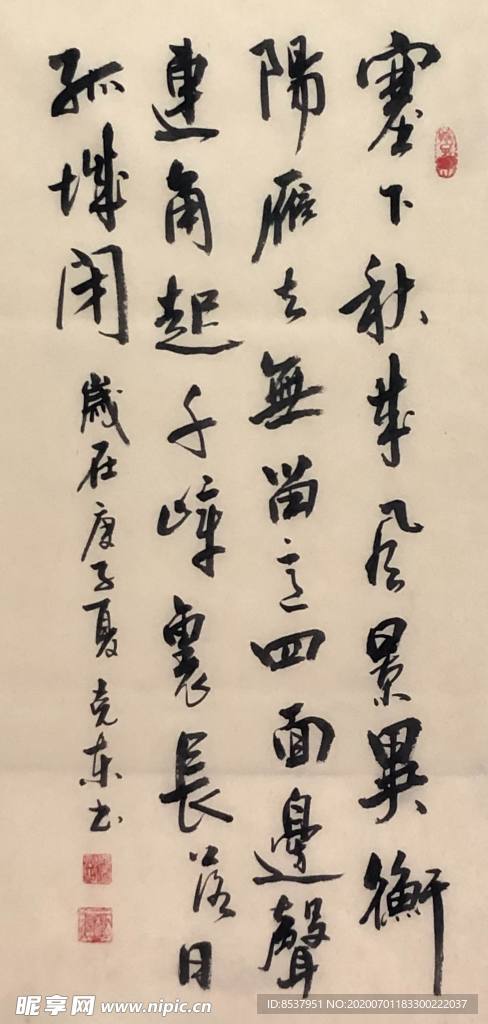 塞下秋來風景異衡
陽雁去無留意四面邊聲
連角起千嶂裏長落日
孤城閉
歲在庚子夏克東书
昵享网 www.nipic.cn
ID:8537951 NO:20200701183300222037